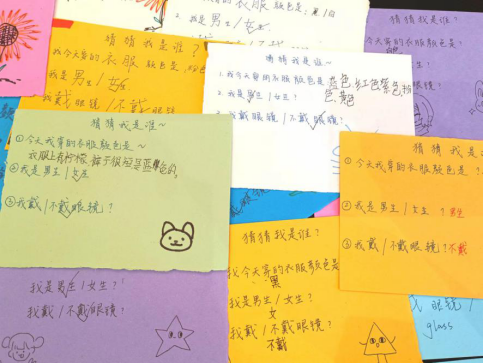 猜猜我是谁？
我今天穿的衣服颜色是
我是男生/女生
我戴眼镜/不戴眼镜
2. 我是男生/女生
猜猜我是谁~
1. 我今天穿的衣服颜色是 红色 紫色
色、黄色
2. 我是男生/女生？
3. 我戴眼镜/不戴眼镜？
猜猜我是谁？
今天穿的衣服颜色是
猜猜我是谁~
①今天我穿的衣服颜色是~
衣服上有柠檬 裤子很短是蓝色的。
②我是男生/女生
③我戴/不戴眼镜？
猜猜我是
①今天我穿的衣服颜色是？
②我是男生/女生？男生
③我戴/不戴眼镜？不戴
我是男生/女生？
我戴/不戴眼镜？
猜猜我是谁？
我今天穿的衣服颜色是
黑
我是男生/女生？
女
我戴/不戴眼镜？
不戴
眼镜/
glass